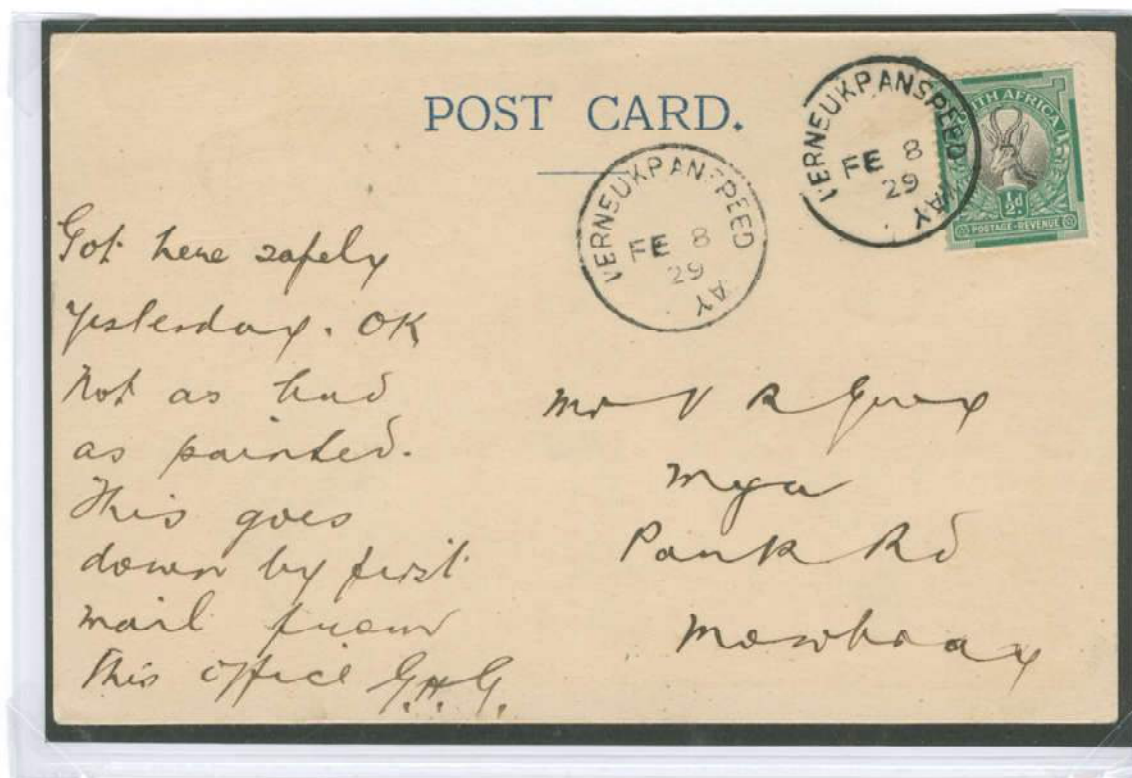 POST CARD.
VERNEUKPAN SPEEDWAY
FE 8
29
SOUTH AFRICA
½d
POSTAGE-REVENUE
VERNEUKPAN SPEEDWAY
FE 8
29
Got here safely
yesterday. OK
Not as bad
as painted.
This goes
down by first
mail from
this office G.H.G.
Mr V R
Park Rd
Mowbray